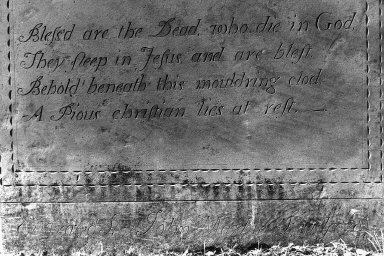 Bless'd are the Dead, who die in God,
They sleep in Jesus and are blest.
Behold! beneath this mouldring clod
A Pious christian lies at rest.—